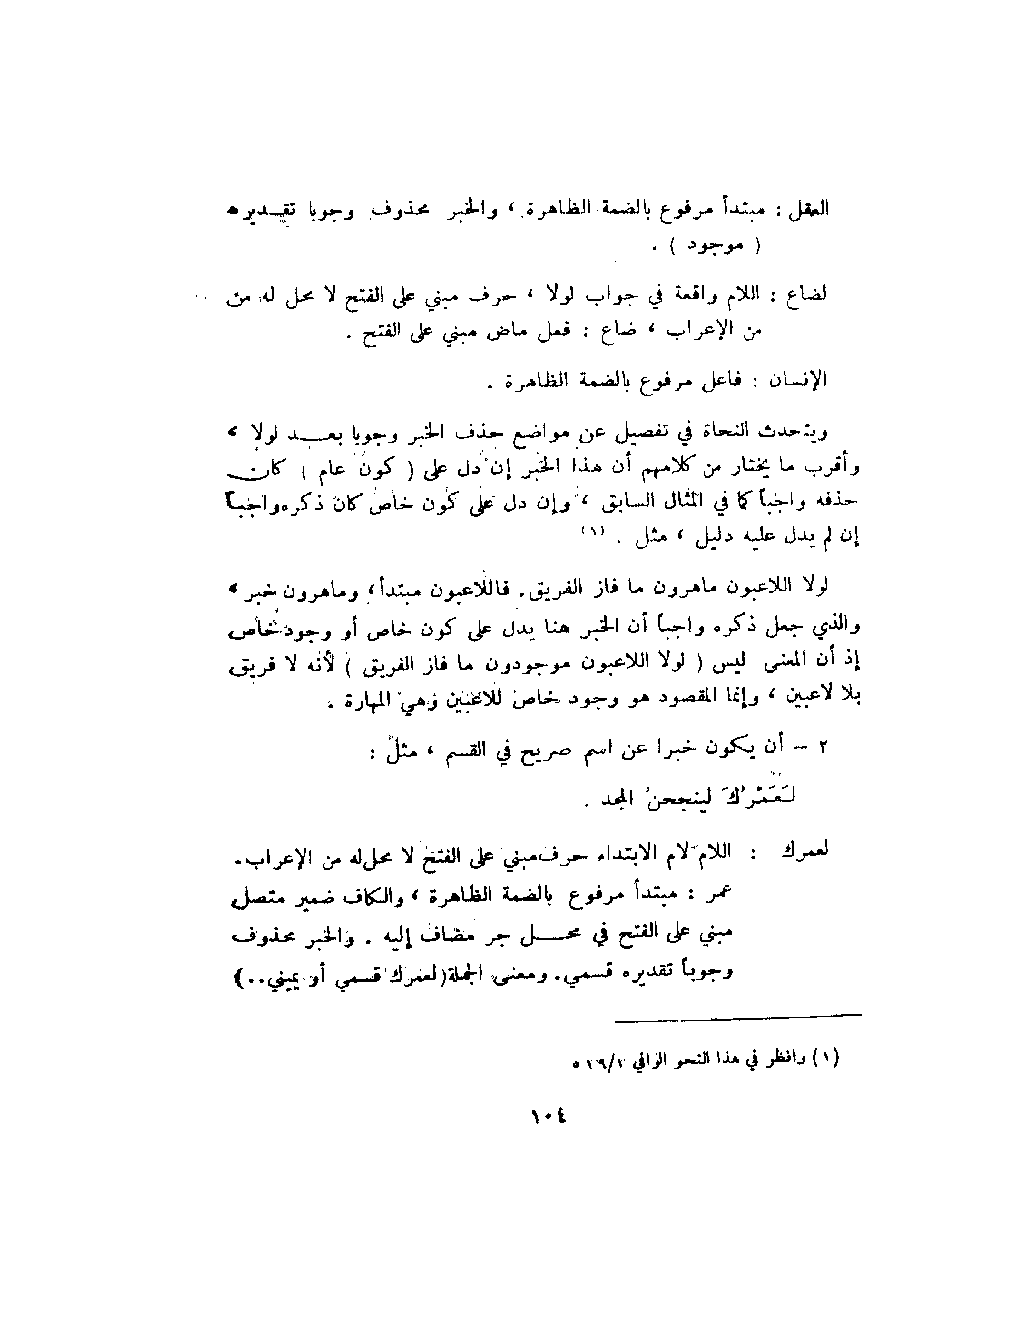 العقل : مبتدأ مرفوع بالضمة الظاهرة ، والخبر محذوف وجوبا تقديره
( موجود ) .
لضاع : اللام واقعة في جواب لولا ، حرف مبني على الفتح لا محل له من
من الإعراب ، ضاع : فعل ماض مبني على الفتح .
الإنسان : فاعل مرفوع بالضمة الظاهرة .
ويتحدث النحاة في تفصيل عن مواضع حذف الخبر وجوبا بعد لولا ،
وأقرب ما يختار من كلامهم أن هذا الخبر إن دل على ( كون عام ) كان
حذفه واجباً كما في المثال السابق ، وإن دل على كون خاص كان ذكره واجباً
إن لم يدل عليه دليل ، مثل . (١)
لولا اللاعبون ماهرون ما فاز الفريق. فاللاعبون مبتدأ ، وماهرون خبر ،
والذي جعل ذكره واجباً أن الخبر هنا يدل على كون خاص أو وجود خاص
إذ أن المعنى ليس ( لولا اللاعبون موجودون ما فاز الفريق ) لأنه لا فريق
بلا لاعبين ، وإنما المقصود هو وجود خاص للاعبين وهي المهارة .
٢ – أن يكون خبرا عن اسم صريح في القسم ، مثل :
لَعَمْرُكَ لينجحن المجد .
لعمرك : اللام لام الابتداء حرف مبني على الفتح لا محل له من الإعراب.
عمر : مبتدأ مرفوع بالضمة الظاهرة ، والكاف ضمير متصل
مبني على الفتح في محل جر مضاف إليه . والخبر محذوف
وجوباً تقديره قسمي. ومعنى الجملة (لعمرك قسمي أو يميني..)
(١) وانظر في هذا النحو الوافي
١٠٤